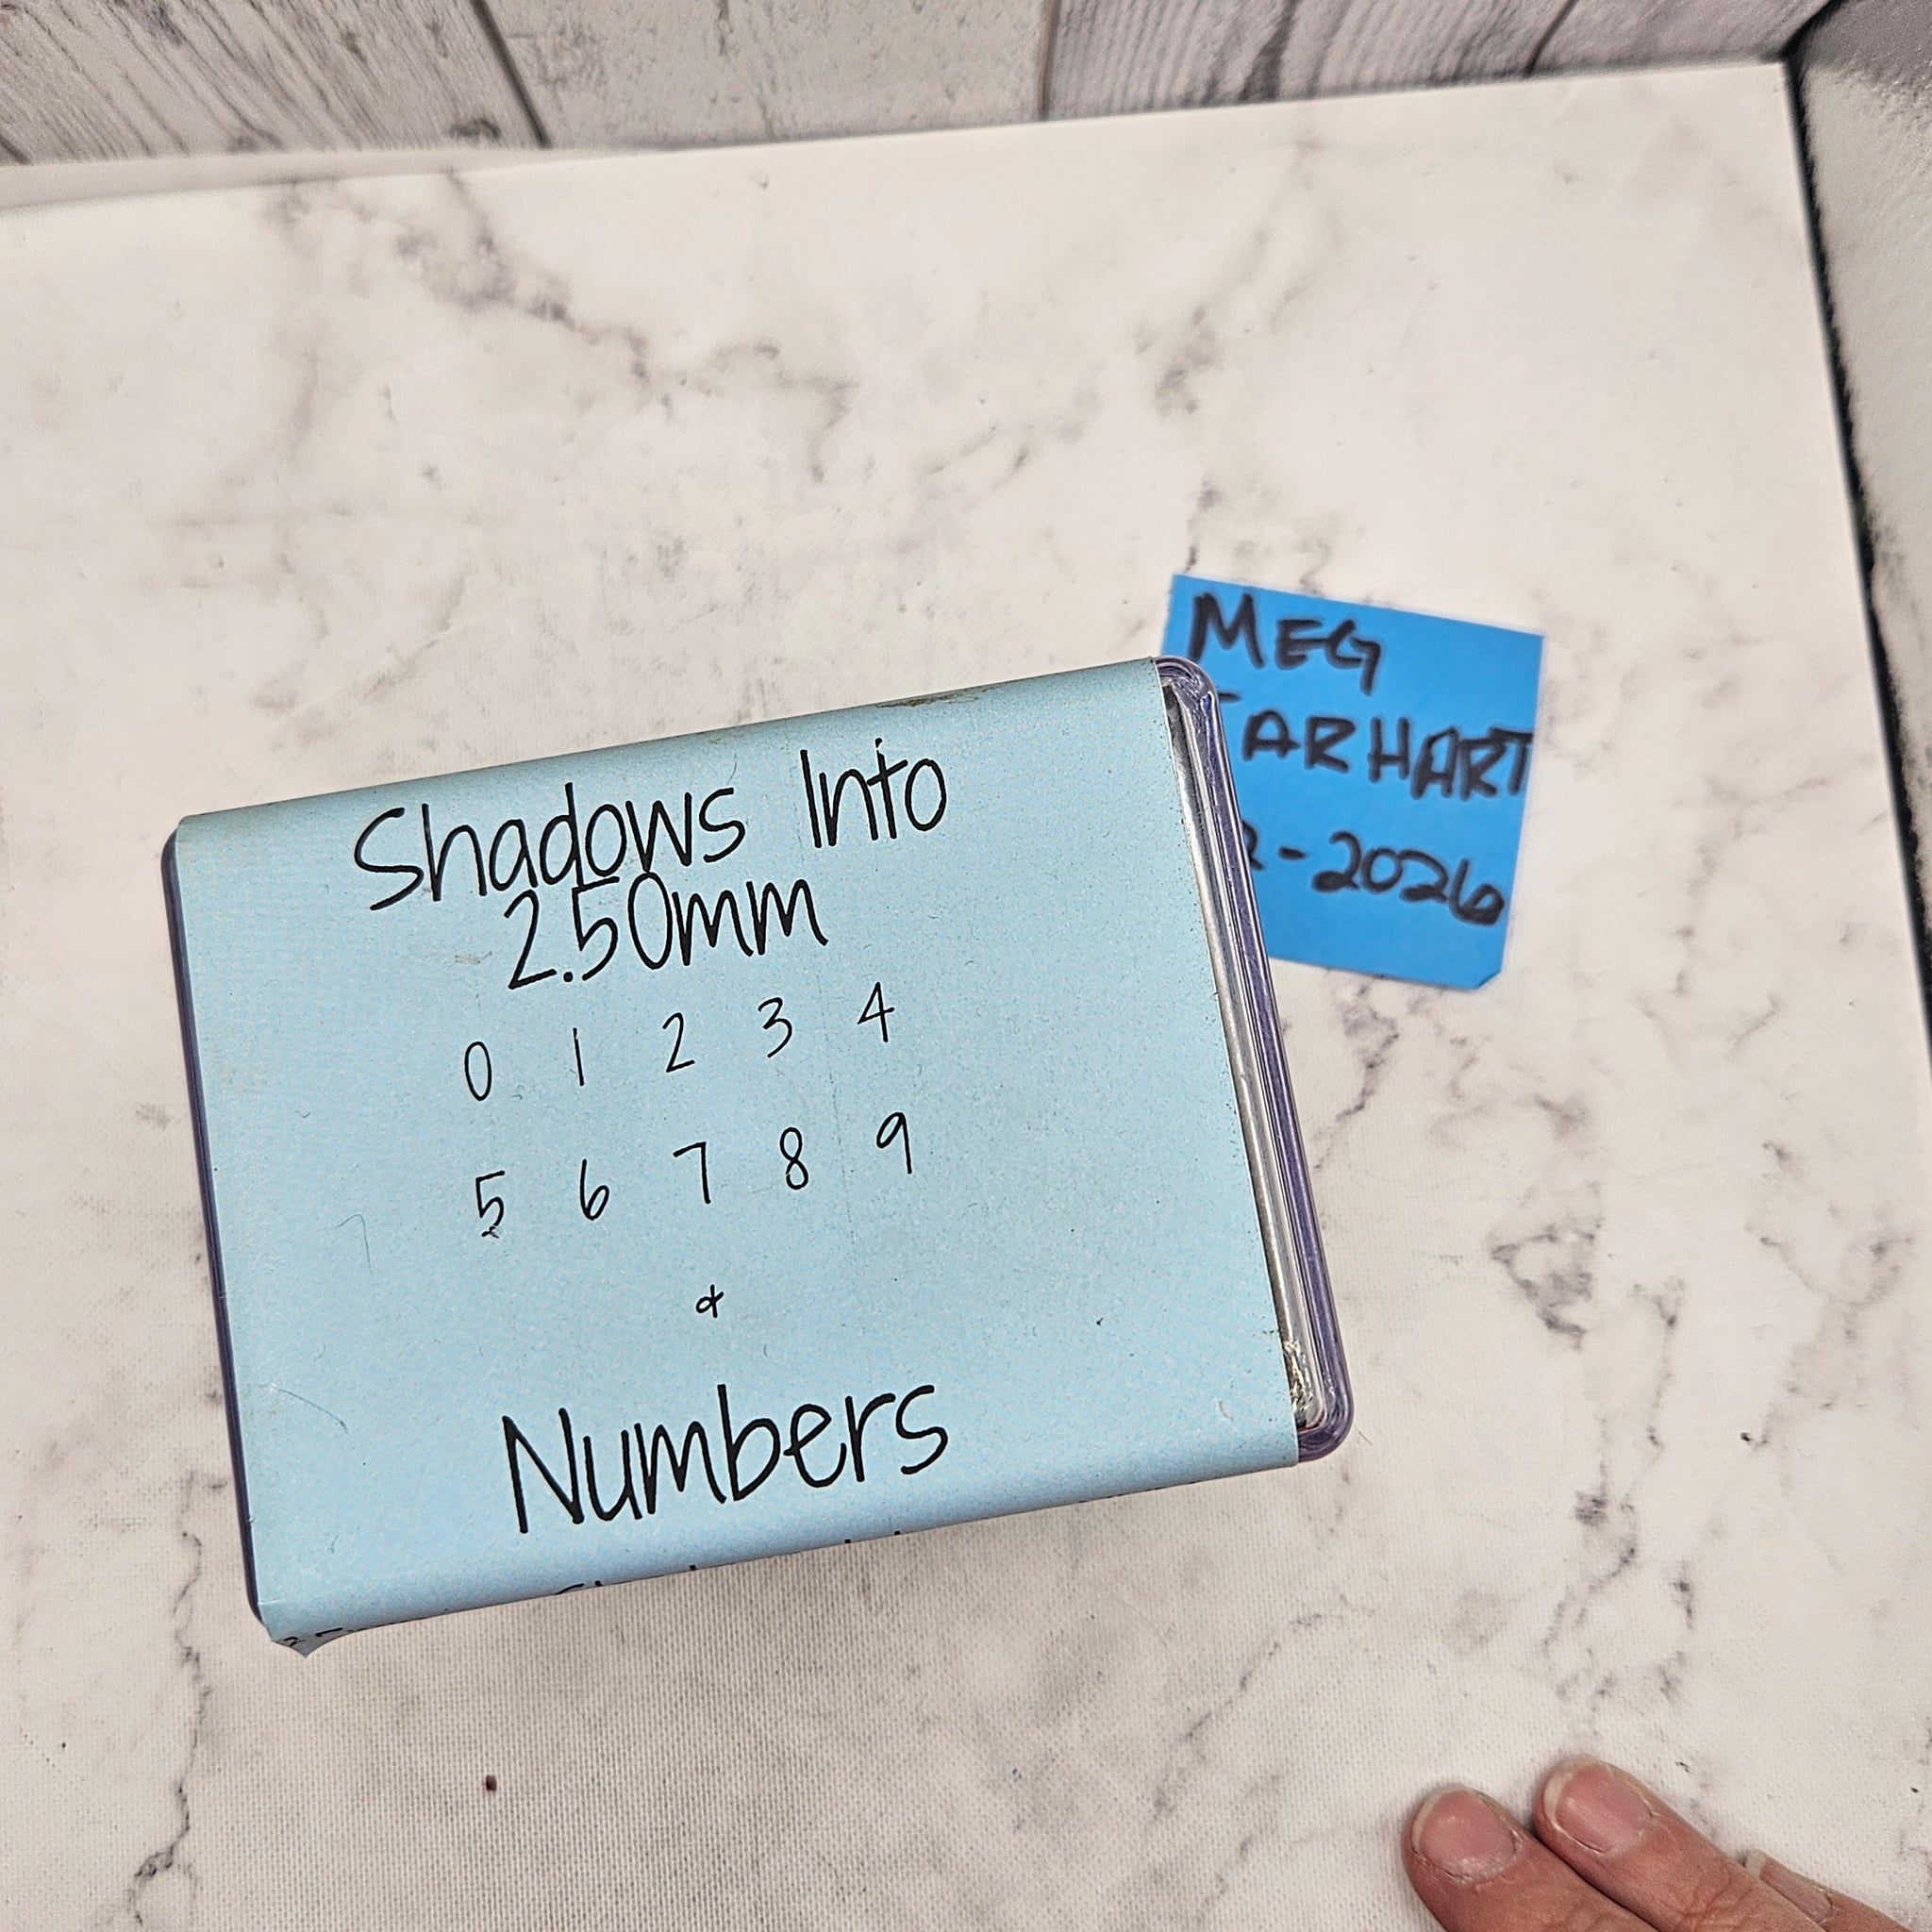 Shadows Into
2.50mm
0 1 2 3 4
5 6 7 8 9
&
Numbers
MEG
ARHART
-2026